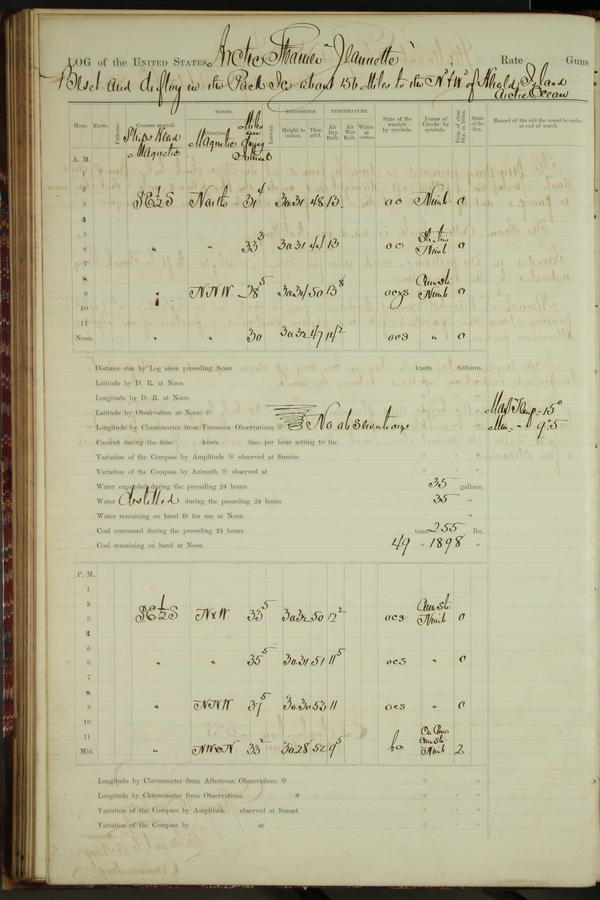 LOG of the UNITED STATES Arctic Steamer "Jeannette" Rate Guns
Beset and drifting in the Pack Ice about 156 Miles to the N & W of Herald Island
Arctic Ocean
Hour. Knots. Fathoms. Courses steered. WINDS. Direction. Leeway. BAROMETER. Height in inches. Ther. att'd. TEMPERATURE. Air Dry Bulb. Air Wet Bulb. Water at surface. State of the weather by symbols. Forms of Clouds by symbols. Prop. of clear Sky, in 10ths. State of the Sea. Record of the sail the vessel is under at end of watch.
Ship's Head Magnetic Magnetic Miles
A. M.
1
2
3 SE½S North 31 4 30 31 48 13 oc Nimb 0
4
5
6 " " 33 3 30 31 44 13 oc Nimb 0
7
8
9 " NNW 28 5 30 34 50 13 8 Cum st Nimb 0
10
11
Noon. " " 30 30 32 47 14 2 ocs " 0
Distance run by Log since preceding Noon knots fathoms.
Latitude by D. R. at Noon
Longitude by D. R. at Noon
Latitude by Observation at Noon Max Temp - 15°
Longitude by Chronometer from Forenoon Observations No observations Min - 9.5
Current during the time knots fms. per hour setting to the
Variation of the Compass by Amplitude observed at Sunrise
Variation of the Compass by Azimuth observed at
Water expended during the preceding 24 hours 35 gallons.
Water distilled during the preceding 24 hours 35 "
Water remaining on hand fit for use at Noon "
Coal consumed during the preceding 24 hours tons 255 lbs.
Coal remaining on hand at Noon 49 " 1898 "
P. M.
1
2
3 SE½S NxW 33 5 30 32 50 12 2 ocs Cum st Nimb 0
4
5
6 " " 35 5 30 31 51 11 5 ocs " 0
7
8
9 " NNW 37 5 30 30 53 11 ocs " 0
10
11
Mid. " NWxN 33 2 30 28 52 9 5 bc Cum st Nimb 2
Longitude by Chronometer from Afternoon Observations
Longitude by Chronometer from Observations
Variation of the Compass by Amplitude observed at Sunset
Variation of the Compass by at